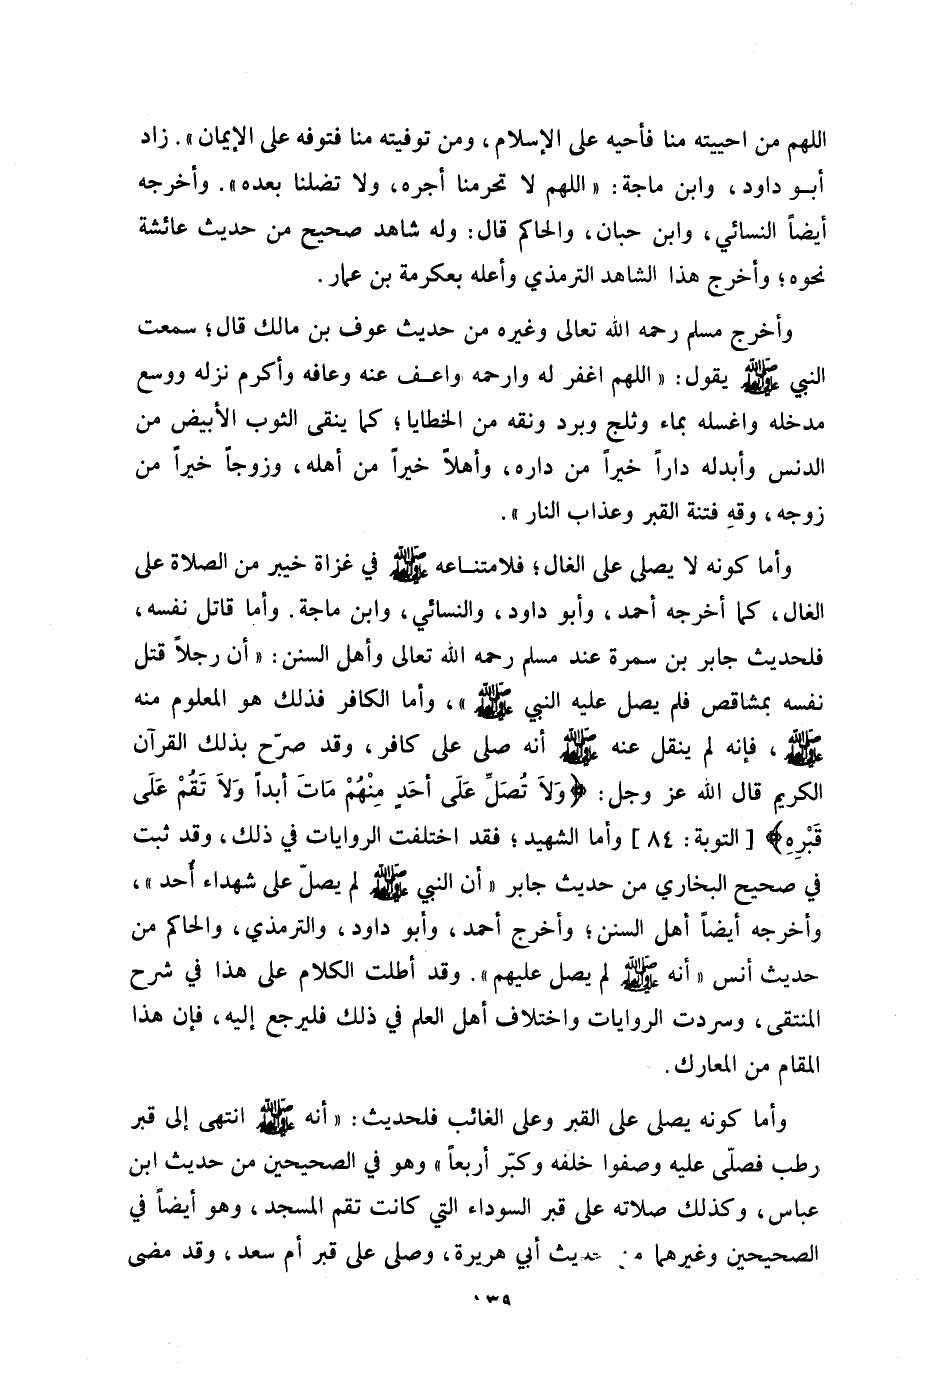 اللهم من احييته منا فأحيه على الإسلام، ومن توفيته منا فتوفه على الإيمان». زاد
أبـو داود، وابن ماجة: «اللهم لا تحرمنا أجره، ولا تضلنا بعده». وأخرجه
أيضاً النسائي، وابن حبان، والحاكم قال: وله شاهد صحيح من حديث عائشة
نحوه؛ وأخرج هذا الشاهد الترمذي وأعله بعكرمة بن عمار.
وأخرج مسلم رحمه الله تعالى وغيره من حديث عوف بن مالك قال؛ سمعت
النبي ﷺ يقول: «اللهم اغفر له وارحمه واعـف عنه وعافه وأكرم نزله ووسع
مدخله واغسله بماء وثلج وبرد ونقه من الخطايا؛ كما ينقى الثوب الأبيض من
الدنس وأبدله داراً خيراً من داره، وأهلاً خيراً من أهله، وزوجاً خيراً من
زوجه، وقهِ فتنة القبر وعذاب النار».
وأما كونه لا يصلى على الغال؛ فلامتنـاعه ﷺ في غزاة خيبر من الصلاة على
الغال، كما أخرجه أحمد، وأبو داود، والنسائي، وابن ماجة. وأما قاتل نفسه،
فلحديث جابر بن سمرة عند مسلم رحمه الله تعالى وأهل السنن: «أن رجلاً قتل
نفسه بمشاقص فلم يصل عليه النبي ﷺ»، وأما الكافر فذلك هو المعلوم منه
ﷺ، فإنه لم ينقل عنه ﷺ أنه صلى على كافر، وقد صرّح بذلك القرآن
الكريم قال الله عز وجل: ﴿وَلاَ تُصَلِّ عَلَى أحَدٍ مِنْهُمْ مَاتَ أبداً وَلاَ تَقُمْ عَلَى
قَبْرِهِ﴾ [التوبة: ٨٤] وأما الشهيد؛ فقد اختلفت الروايات في ذلك، وقد ثبت
في صحيح البخاري من حديث جابر «أن النبي ﷺ لم يصلّ على شهداء أُحد»،
وأخرجه أيضاً أهل السنن؛ وأخرج أحمد، وأبو داود، والترمذي، والحاكم من
حديث أنس «أنه ﷺ لم يصل عليهم». وقد أطلت الكلام على هذا في شرح
المنتقى، وسردت الروايات واختلاف أهل العلم في ذلك فليرجع إليه، فإن هذا
المقام من المعارك.
وأما كونه يصلى على القبر وعلى الغائب فلحديث: «أنه ﷺ انتهى إلى قبر
رطب فصلّى عليه وصفوا خلفه وكبّر أربعاً» وهو في الصحيحين من حديث ابن
عباس، وكذلك صلاته على قبر السوداء التي كانت تقم المسجد، وهو أيضاً في
الصحيحين وغيرهما من حديث أبي هريرة، وصلى على قبر أم سعد، وقد مضى